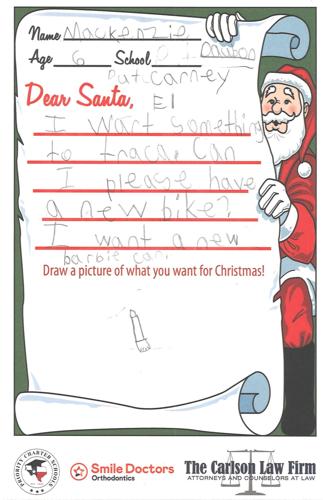 Name Mackenzie
Age 6 School
Pat Carney
Dear Santa, El
I want something
to traca. Can
I please have
a new bike?
I want a new
barbie car.
Draw a picture of what you want for Christmas!
PRIORITY CHARTER SCHOOLS
Smile Doctors
Orthodontics
The Carlson Law Firm
ATTORNEYS AND COUNSELORS AT LAW